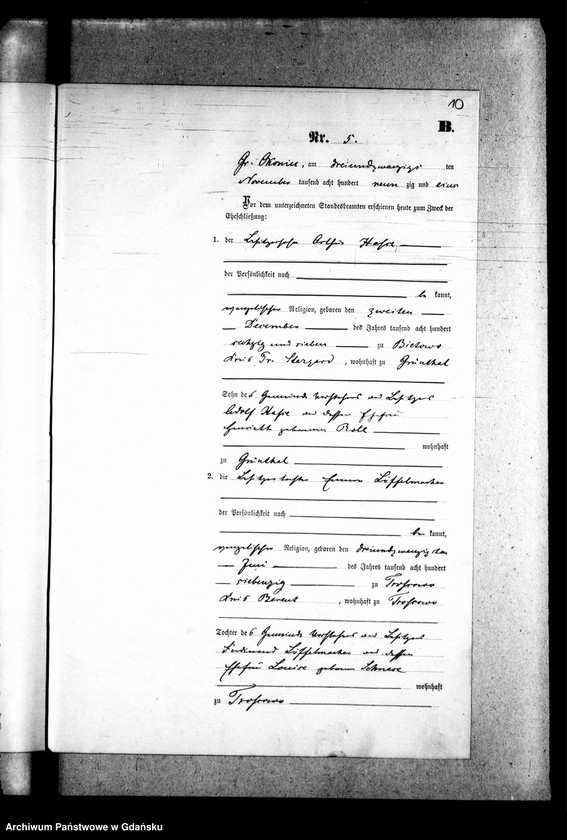 10
B.
Nr. 5.
Gr. Okoniн, am dreiundzwanzigs ten
November tausend acht hundert neun zig und eins
Vor dem unterzeichneten Standesbeamten erschienen heute zum Zweck der
Eheschließung:
1. der Besitzersohn Arthur Hasse
der Persönlichkeit nach
be kannt,
evangelischer Religion, geboren den zweiten
December des Jahres tausend acht hundert
sechzig und sieben zu Bietowo
Kreis Pr. Stargard, wohnhaft zu Grünthal
Sohn des Gemeinde Vorstehers und Besitzers
Adolf Hasse und dessen Ehefrau
Henriette geborenen Roll
wohnhaft
zu Grünthal
2. die Besitzertochter Emma Löffelmacher
der Persönlichkeit nach
be kannt,
evangelischer Religion, geboren den dreiundzwanzigsten
Juni des Jahres tausend acht hundert
siebenzig zu Trosowo
Kreis Berent, wohnhaft zu Trosowo
Tochter des Gemeinde Vorstehers und Besitzers
Ferdinand Löffelmacher und dessen
Ehefrau Louise geboren Schnase
wohnhaft
zu Trosowo
Archiwum Państwowe w Gdańsku